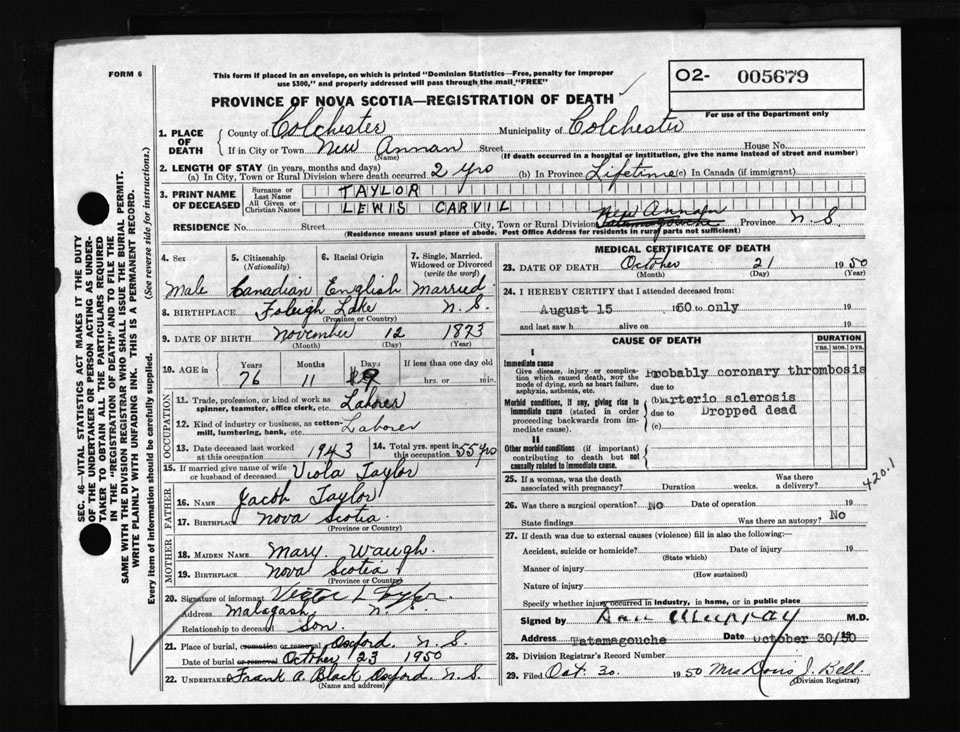 FORM 6
This form if placed in an envelope, on which is printed "Dominion Statistics—Free, penalty for improper
use $300," and properly addressed will pass through the mail "FREE"
O2- 005679
For use of the Department only
PROVINCE OF NOVA SCOTIA—REGISTRATION OF DEATH
1. PLACE OF DEATH
County of Colchester Municipality of Colchester
If in City or Town New Annan Street House No.
(Name) (If death occurred in a hospital or institution, give the name instead of street and number)
2. LENGTH OF STAY (in years, months and days)
(a) In City, Town or Rural Division where death occurred 2 yrs (b) In Province Lifetime (c) In Canada (if immigrant)
3. PRINT NAME OF DECEASED
Surname or Last Name TAYLOR
All Given or Christian Names LEWIS CARVIL
RESIDENCE No. Street City, Town or Rural Division New Annan Tatamagouche Province N.S
(Residence means usual place of abode. Post Office Address for residents in rural parts not sufficient)
4. Sex
Male
5. Citizenship (Nationality)
Canadian
6. Racial Origin
English
7. Single, Married, Widowed or Divorced (write the word)
Married
8. BIRTHPLACE Foleigh Lake N.S.
(Province or Country)
9. DATE OF BIRTH November 12 1873
(Month) (Day) (Year)
10. AGE in Years Months Days If less than one day old
76 11 9 hrs. or min.
OCCUPATION
11. Trade, profession, or kind of work as spinner, teamster, office clerk, etc. Laborer
12. Kind of industry or business, as cotton-mill, lumbering, bank, etc. Laborer
13. Date deceased last worked at this occupation 1943
14. Total yrs. spent in this occupation 55 yrs
15. If married give name of wife or husband of deceased Viola Taylor
FATHER
16. NAME Jacob Taylor
17. BIRTHPLACE Nova Scotia
(Province or Country)
MOTHER
18. MAIDEN NAME Mary Waugh
19. BIRTHPLACE Nova Scotia
(Province or Country)
20. Signature of informant Victor L
Address Malagash N.S.
Relationship to deceased Son.
21. Place of burial, cremation or removal Oxford. N.S.
Date of burial or removal October 23 1950
22. UNDERTAKER Frank A. Black Oxford. N.S.
(Name and address)
MEDICAL CERTIFICATE OF DEATH
23. DATE OF DEATH October 21 1950
(Month) (Day) (Year)
24. I HEREBY CERTIFY that I attended deceased from:
August 15 1950 to only 19
and last saw h alive on 19
CAUSE OF DEATH
DURATION
YRS. MOS. DYS.
I
Immediate cause
Give disease, injury or complication which caused death, not the mode of dying, such as heart failure, asphyxia, asthenia, etc.
Probably coronary thrombosis
due to
Morbid conditions, if any, giving rise to immediate cause (stated in order proceeding backwards from immediate cause).
(b) arterio sclerosis
due to Dropped dead
(c)
II
Other morbid conditions (if important) contributing to death but not causally related to immediate cause.
420.1
25. If a woman, was the death associated with pregnancy? Duration weeks. Was there a delivery?
26. Was there a surgical operation? NO Date of operation 19
State findings Was there an autopsy? No
27. If death was due to external causes (violence) fill in also the following:—
Accident, suicide or homicide? Date of injury 19
(State which)
Manner of injury
(How sustained)
Nature of injury
Specify whether injury occurred in industry, in home, or in public place
Signed by Dan Murray M.D.
Address Tatamagouche Date October 30/50
28. Division Registrar's Record Number
29. Filed Oct. 30. 1950 Mrs Doris J. Bell.
(Division Registrar)
SEC. 46 VITAL STATISTICS ACT MAKES IT THE DUTY
OF THE UNDERTAKER OR PERSON ACTING AS UNDERTAKER
TO OBTAIN ALL THE PARTICULARS REQUIRED
IN THE "REGISTRATION OF DEATH" AND TO FILE THE
SAME WITH THE DIVISION REGISTRAR WHO SHALL ISSUE THE BURIAL PERMIT.
WRITE PLAINLY WITH UNFADING INK. THIS IS A PERMANENT RECORD.
Every item of information should be carefully supplied. (See reverse side for instructions.)